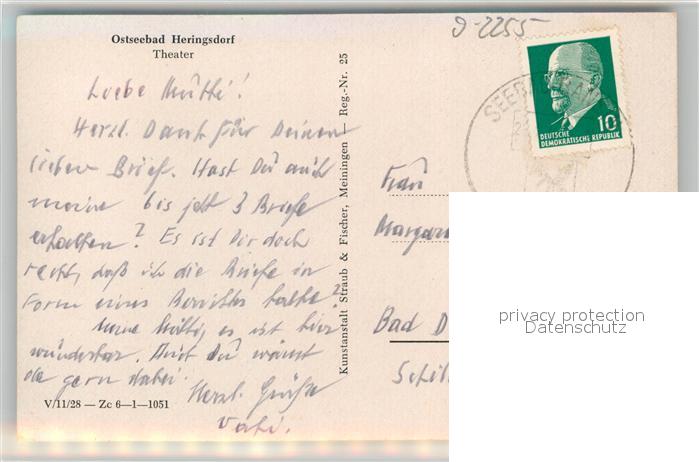 Ostseebad Heringsdorf
Theater
Liebe Mutti!
Herzl. Dank für Deinen
lieben Brief. Hast Du auch
meine bis jetzt 3 Briefe
erhalten? Es ist Dir doch
recht, daß ich die Briefe in
Form eines Berichts halte?
Mutti, es ist hier
wunderbar. Auch Du wärst
da gern dabei.
Herzl. Grüße
V/11/28 — Zc 6—1—1051
Kunstanstalt Straub & Fischer, Meiningen — Reg.-Nr. 25
9-2255
SEEBAD
10
DEUTSCHE
DEMOKRATISCHE REPUBLIK
Frau
Margar
Bad D
privacy protection
Datenschutz